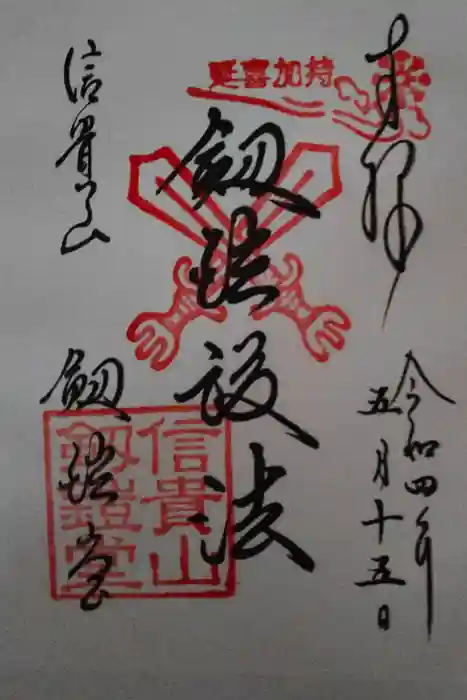 奉拝
令和四年
五月十五日
延喜加持
劔鎧護法
信貴山
劔鎧堂
信貴山
劔鎧堂